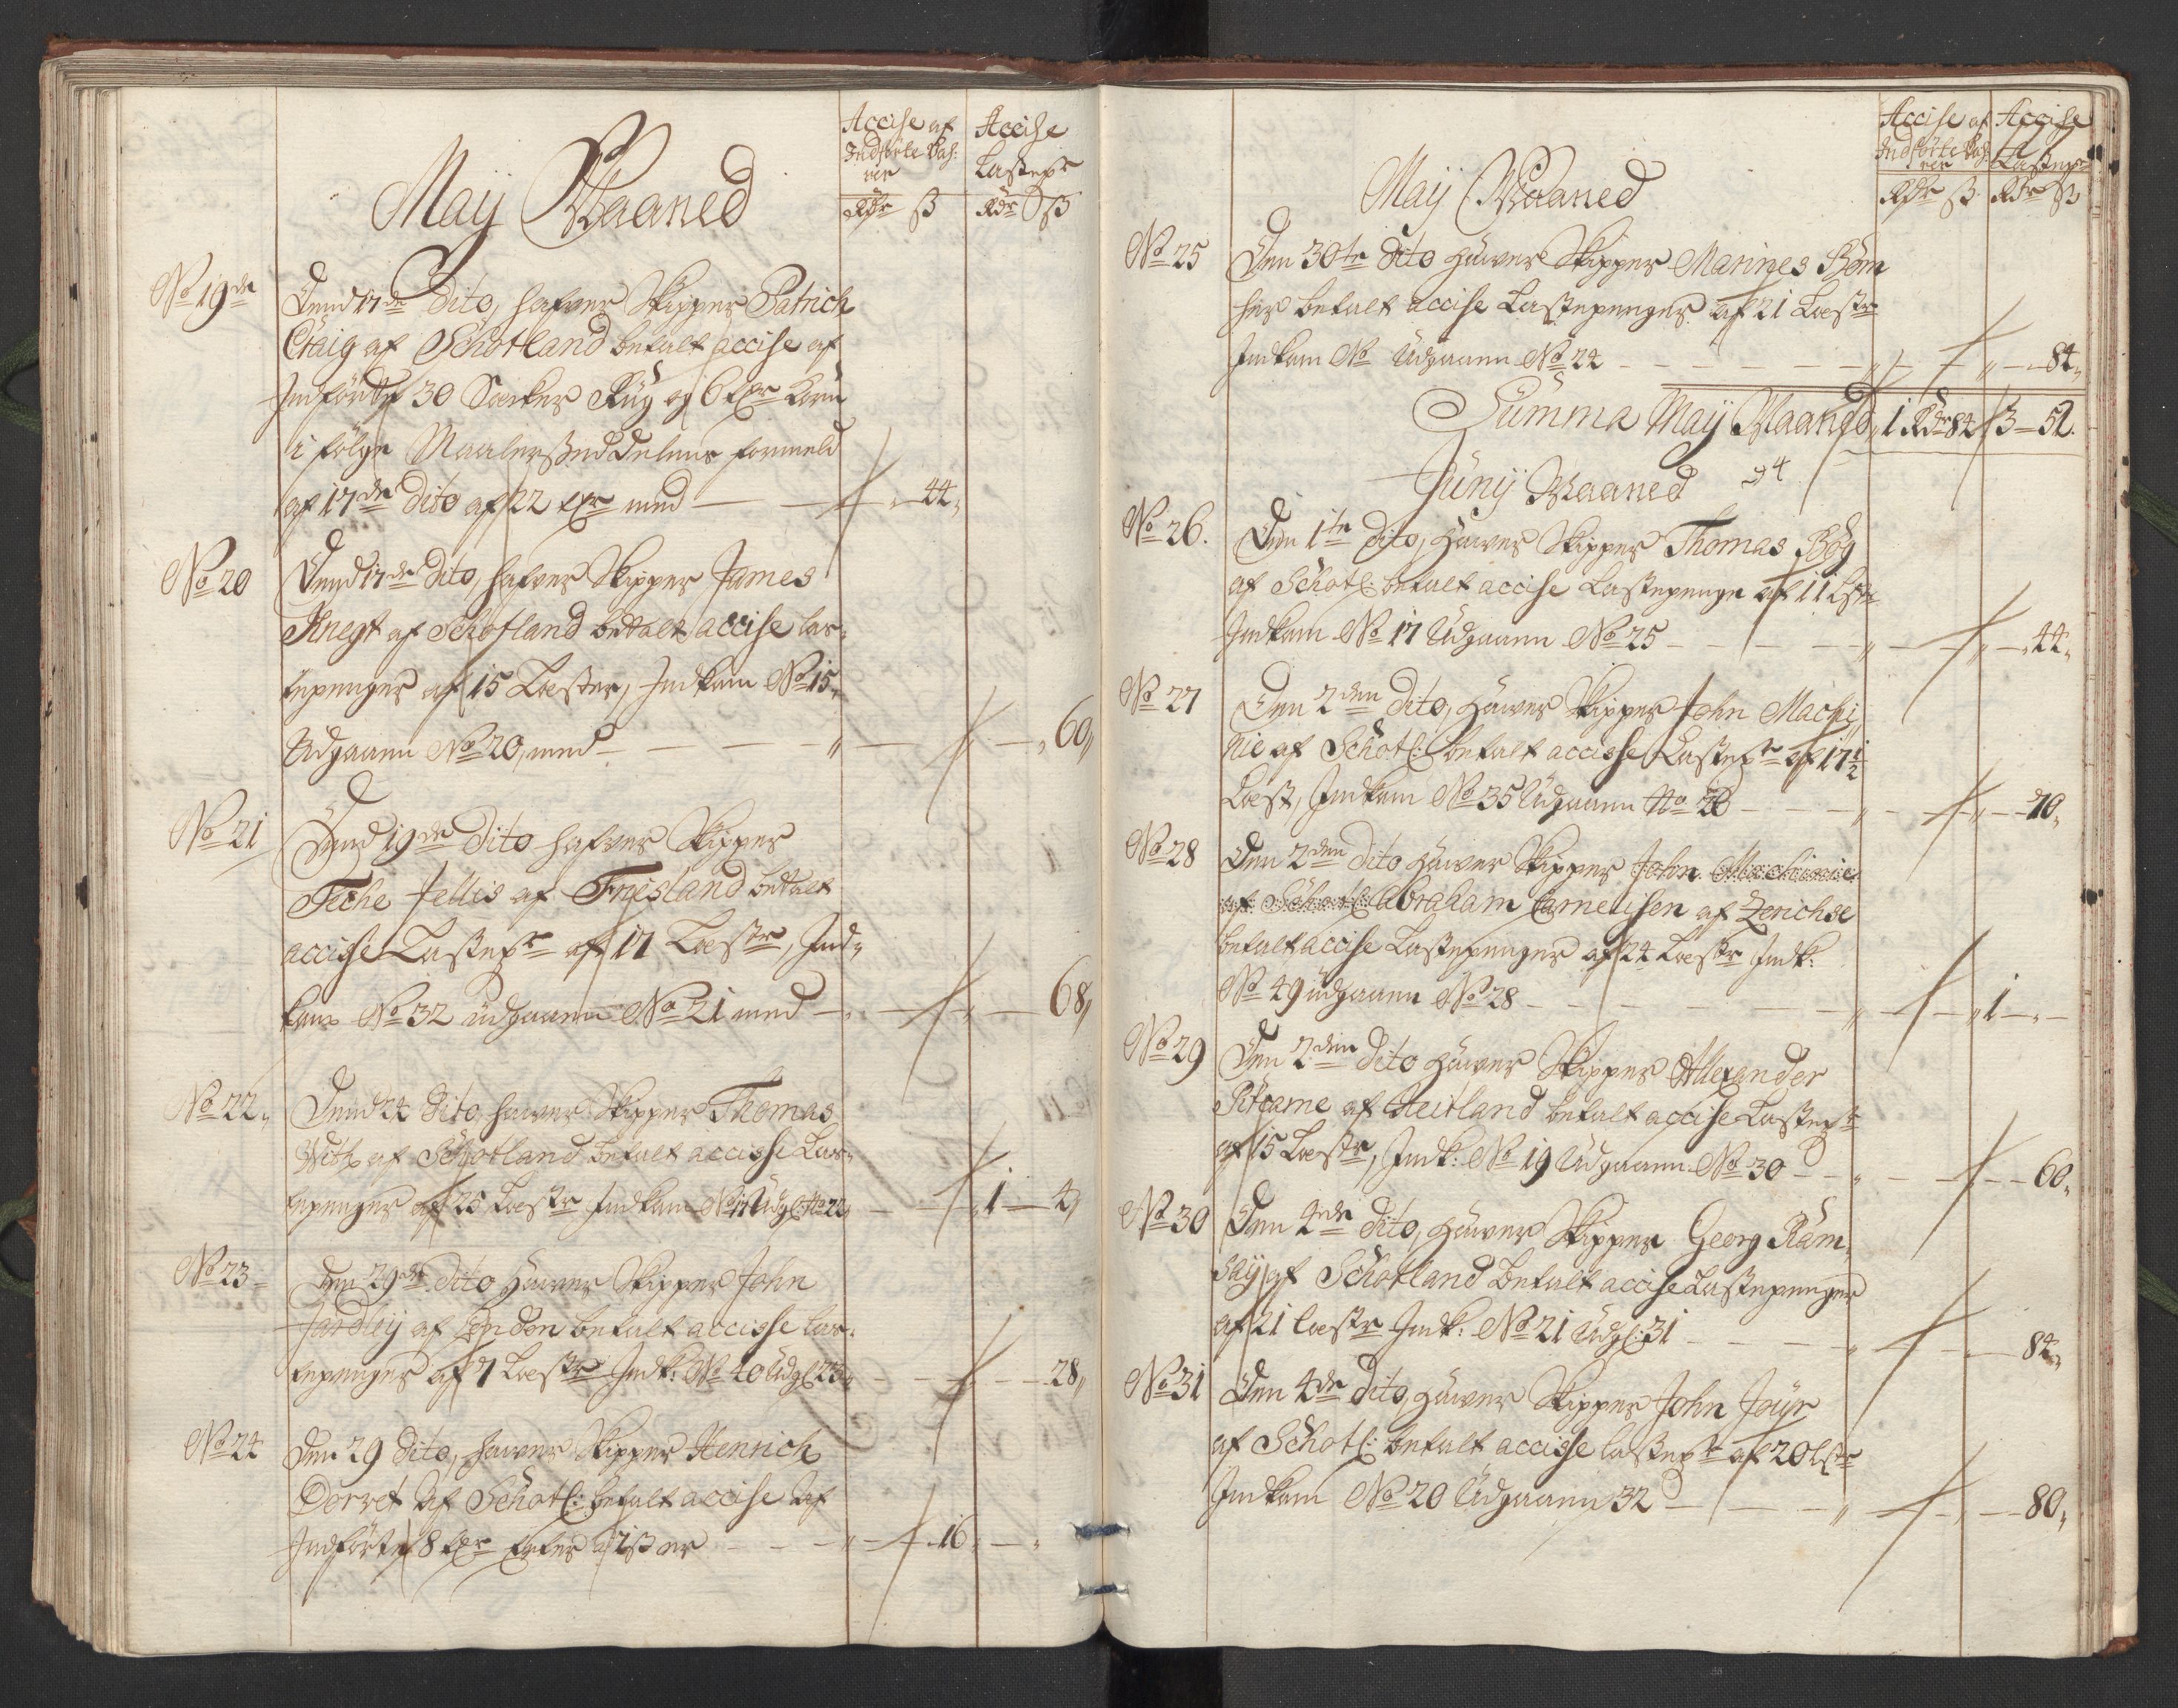 Accise af
Indførte Vah:
rer
Rdr ß
Accise
Lastepe
Rdr ß
Maij Maaned
No 19de
Dend 17de Dito, hafver Skipper Patrich
Craig af Schotland betalt accise af
Indførte 30 Sæcker Rug og 6 tr Korn
i følge Maalerseddelens formeld
af 17de Dito af 22 tr med — — 44,
No 20
Dend 17de Dito, hafver Skipper James
Knegt af Schotland betalt accise las-
tepenger af 15 Læster, Indkam No 15,
Udgaaen No 20, med — — — — „ — — „ 60„
No 21
Dend 19de Dito hafver Skipper
Teche Jellis af Friesland betalt
accise Lastepe af 17 Læstr, Ind-
kam No 32 udgaaen No 21 med — „ — — „ — 68„
No 22„
Dend 24 Dito, haver Skipper Thomas
With af Schotland betalt accisse Las-
tepenger af 25 Læstr Indkam No 17 Udg: No 22, — — „ 1 — 4,
No 23
Den 29de Dito hawer Skipper John
Jardleÿ af London betalt accisse las-
tepenger af 7 Læstr Indk: No 40 Udg: 23 „ — — — — 28„
No 24
Den 29 Dito, hawer Skipper Henrich
Dorret af Schotl: betalt accise af
Indførte 8 tr Erter a 2 ß er — — — „ — 16 „ — „
Accise af
Indførte Vah-
rer
Rdr ß
Accise
Lastepe
Rdr ß
Maij Maaned
No 25
Den 30te Dito hawer Skipper Marines Böm
her betalt accise Lastepenger af 21 Læstr
Indkam No Udgaaen No 24 — — — — — — „ — — „ — 84„
Summa Maij Maaned „ 1 Rdr 84 / 3 — 52.
Junij Maaned
No 26.
Den 1te Dito, hawer Skipper Thomas Bög
af Schotl: betalt accise Lastepenge af 11 Lstr
Indkam No 17 Udgaaen No 25 — — — — — „ — — „ — 44„
No 27
Den 2den Dito, hawer Skipper John Machi
nie af Schotl: betalt accisse Lastepe af 17 1/2
Læst, Indkam No 35 Udgaaen No 26 — — — „ — — „ — 70„
No 28
Den 2den Dito hawer Skipper John Machinie
af Schotl: Abraham Cornelisen af Zerichse
betalt accise Lastepenger af 24 Læstr Indk:
No 49 udgaaen No 28 — — — — — — „ — — „ 1 — „ —
No 29
Den 2den Dito hawer Skipper Allexander
Pitcarne af Heitland betalt accise Lastepe
af 15 Læstr, Indk: No 19 Udgaaen No 30 — — „ — — — — 60„
No 30
Den 2nde Dito, hawer Skipper Georg Ram-
say af Schotland betalt accise Lastepenger
af 21 læstr Indk: No 21 Udg: 31 — — — — „ — — — 84„
No 31
Den 4de Dito, hawer Skipper John Joijr
af Schotl: betalt accisse lastepe af 20 lstr
Indkam No 20 Udgaaen 32 — — — — „ — — — 80„